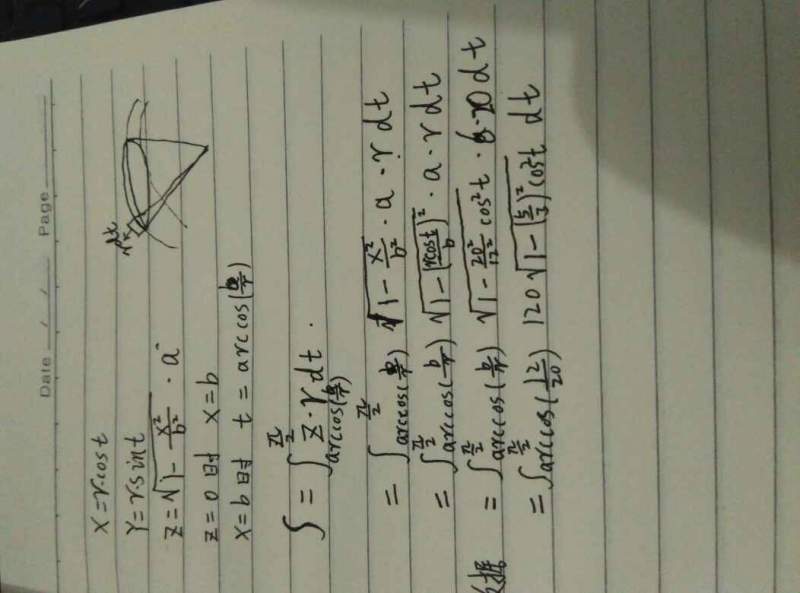 Date / / Page
x = r·cost
Y = r·sint
z = √(1 - x²/b²) · a
z = 0时 x = b
x = b时 t = arccos(b/r)
S = ∫_{arccos(b/r)}^{π/2} z·r dt.
= ∫_{arccos(b/r)}^{π/2} √(1 - x²/b²) · a · r dt
= ∫_{arccos(b/r)}^{π/2} √(1 - (rcost/b)²) · a · r dt
= ∫_{arccos(b/r)}^{π/2} √(1 - 20²/12² cos²t) · 6 · 20 dt
= ∫_{arccos(12/20)}^{π/2} 120 √(1 - (5/3)² cos²t) dt